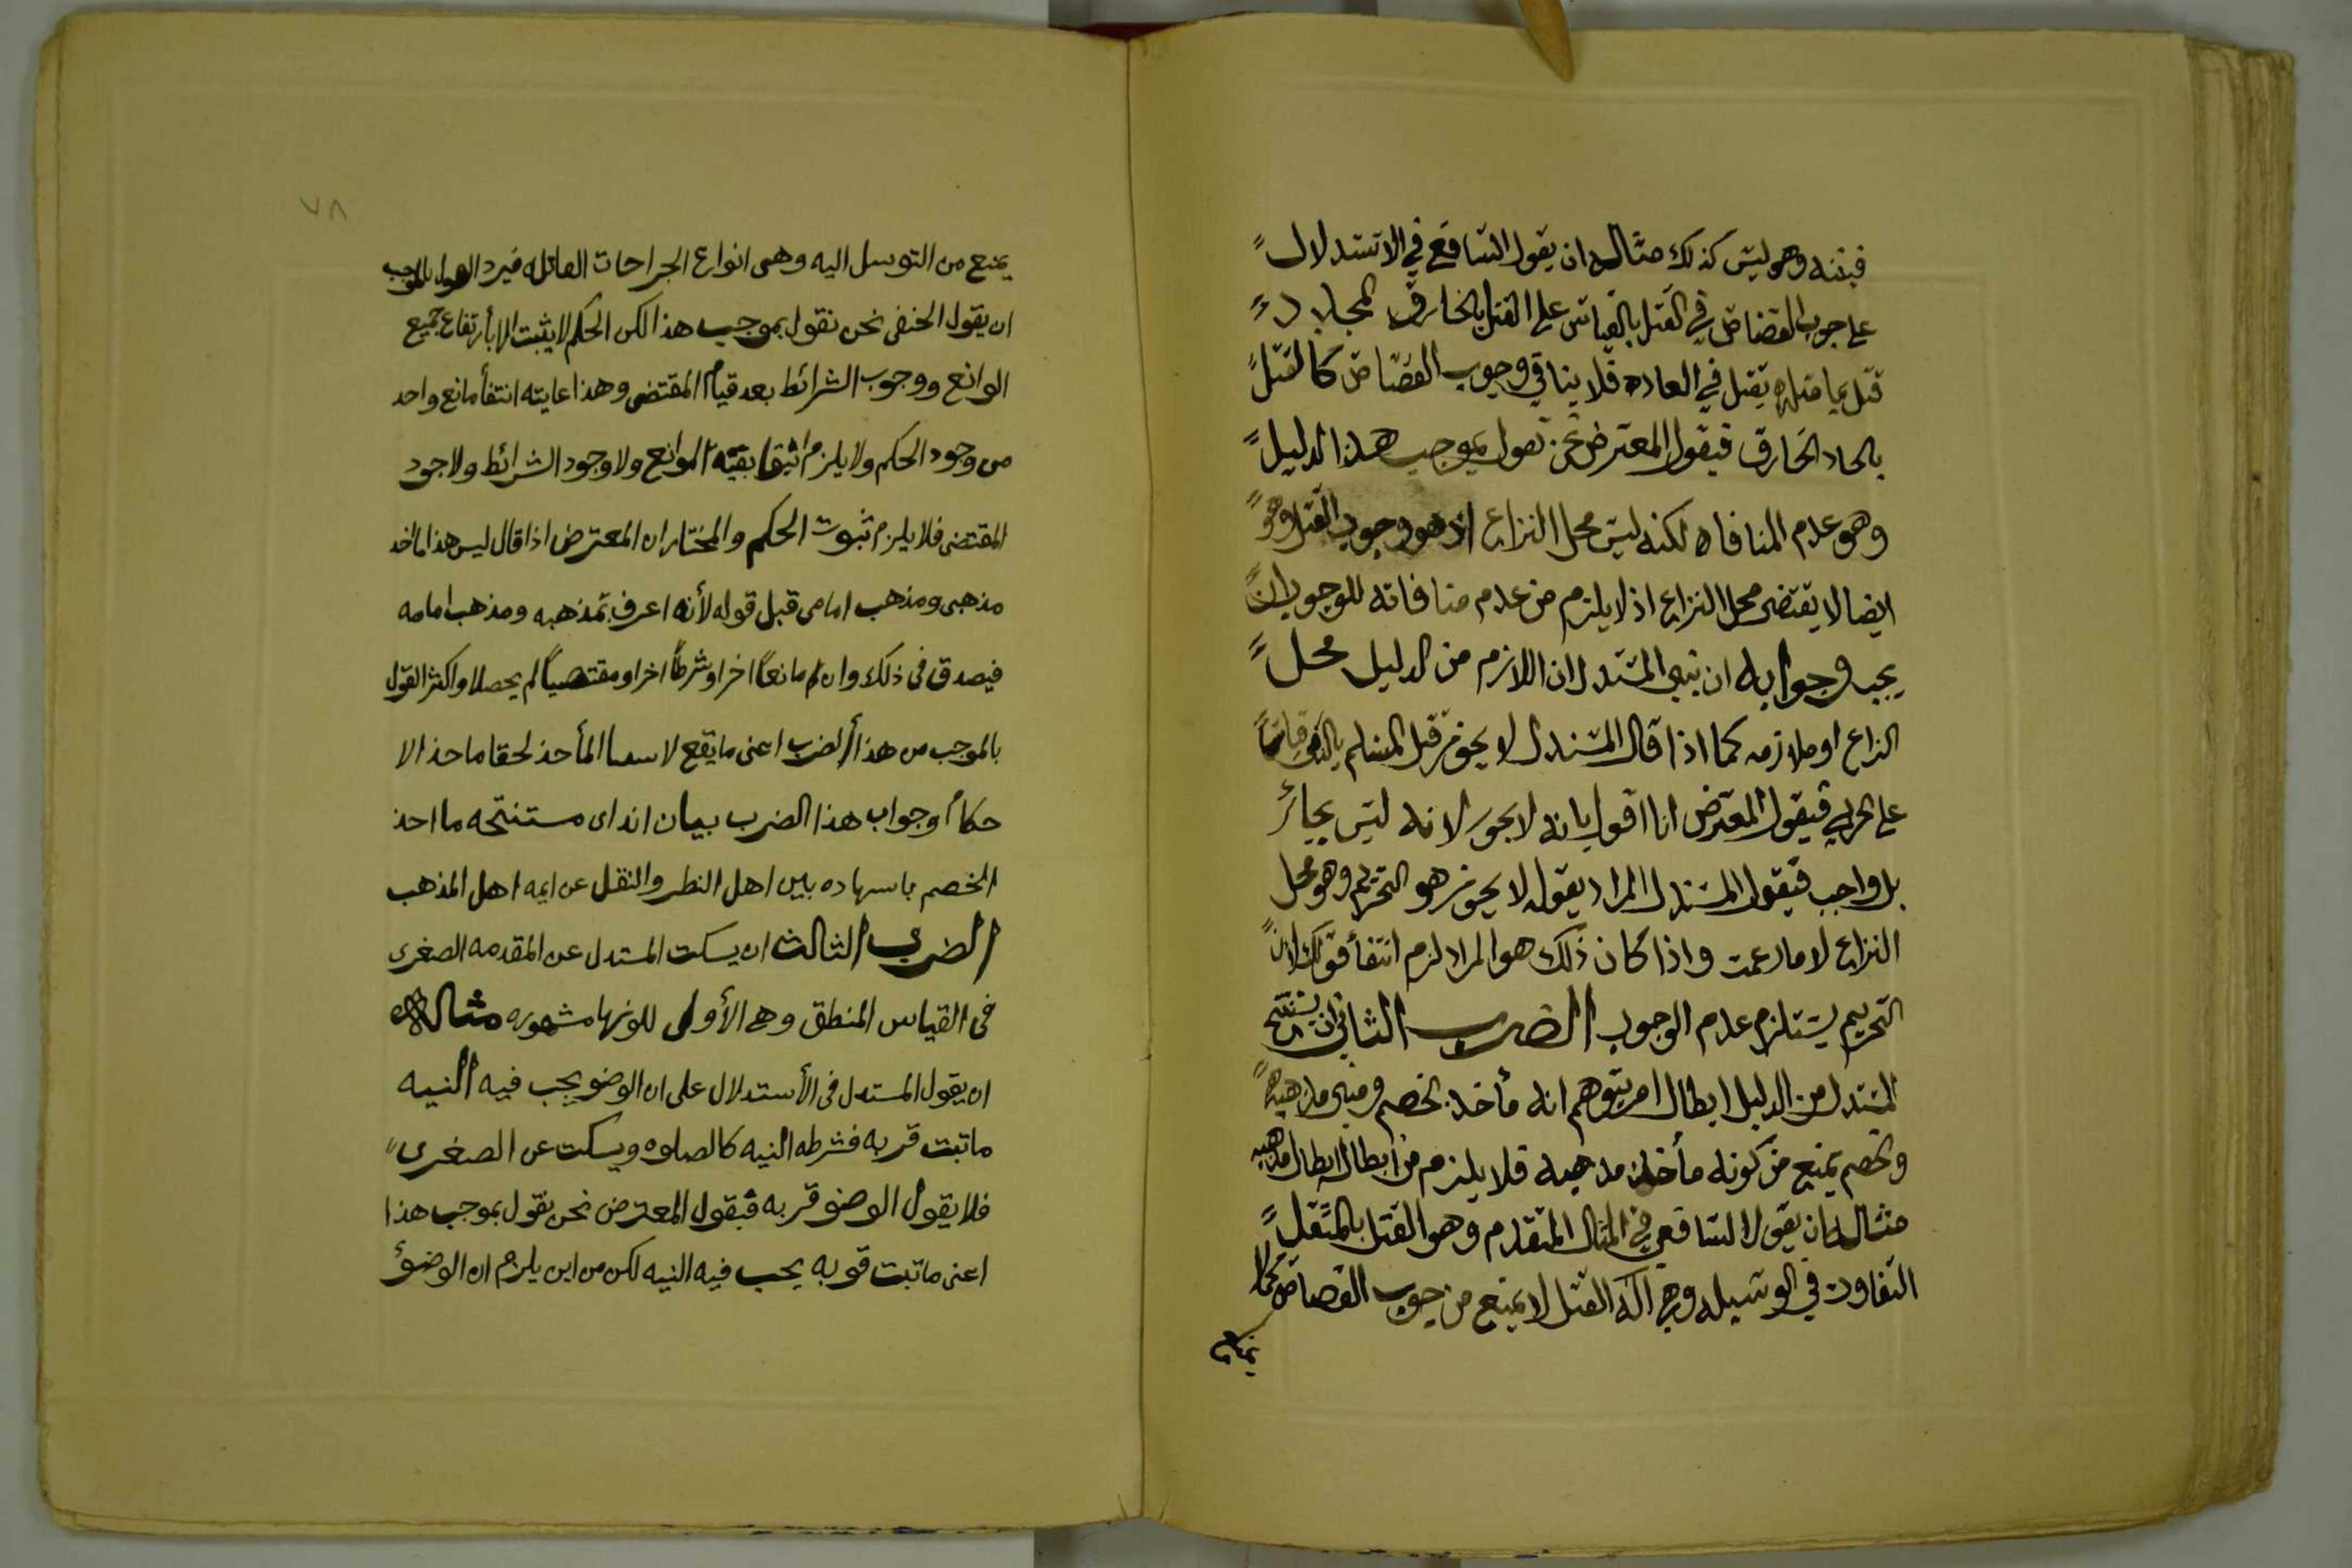 فيثبته وهو ليس كذلك مثاله ان يقول الشافعي في الاستدلال
على جوب القصاص في القتل بالقياس على القتل بالخارق المجادد
قتل بما مثله يقتل في العاده فلا ينافي وجوب القصاص كالقتل
بالحاد الخارق فيقول المعترض نحن نقول بموجب هذا الدليل
وهو عدم المنافاه لكنه ليس محل النزاع اذ هو وجوب القتل وهو
ايضا لا يقتضى محل النزاع اذ لا يلزم من عدم منافاته للوجوب ان
يجب وجوابه ان يبين المستدل ان اللازم من الدليل محل
النزاع او ملازمه كما اذا قال المستدل لا يجوز قتل المسلم بالذمى قياسا
على الحربي فيقول المعترض انا اقول بانه لا يجوز لانه ليس بجائز
بل واجب فيقول المستدل المراد بقوله لا يجوز هو التحريم وهو محل
النزاع لا ما زعمت واذا كان ذلك هو المراد لزم انتفأ قولك لان
التحريم يستلزم عدم الوجوب الضرب الثانى ان يستنتج
المستدل من الدليل ابطال امر يتوهم انه مأخذ الخصم ومبنى مذهبه
والخصم يمنع من كونه مأخذ مذهبه فلا يلزم من ابطاله ابطال مذهبه
مثاله ان يقول الشافعي في المثال المتقدم وهو القتل بالمثقل
التفاوت في الوسيله وهي اله القتل لا يمنع من جوب القصاص كما لا
يمنع
٧٨
يمنع من التوسل اليه وهى انواع الجراحات القاتله فيرد القول بالموجب
ان يقول الحنفى نحن نقول بموجب هذا لكن الحكم لا يثبت الا بأرتفاع جميع
الموانع ووجوب الشرائط بعد قيام المقتضى وهذا غايته انتفأ مانع واحد
من وجود الحكم ولا يلزم انتفا بقية الموانع ولا وجود الشرائط ولا جود
المقتضى فلا يلزم ثبوت الحكم والمختار ان المعترض اذا قال ليس هذا ماخذ
مذهبى ومذهب امامى قبل قوله لأنه اعرف بمذهبه ومذهب امامه
فيصدق فى ذلك وان مانعًا اخر او شرطًا اخر او مقتضيًا لم يحصلا واكثر القول
بالموجب من هذا الضرب اعنى ما يقع لاسما المأخذ لخفا ماخذ الا
حكام وجواب هذا الضرب بيان ان اى مستنتجه ما اخذ
الخصم باسهاده بين اهل النظر والنقل عن ايمه اهل المذهب
الضرب الثالث ان يسكت المستدل عن المقدمه الصغرى
فى القياس المنطق وهى الأولى للونها مشهوره مثاله
ان يقول المستدل فى الأستدلال على ان الوضو يجب فيه النيه
ما تبت قربه فشرطه النيه كالصلوه ويسكت عن الصغرى
فلا يقول الوضو قربه فيقول المعترض نحن نقول بموجب هذا
اعنى ما تبت قوبه يحب فيه النيه لكن من اين يلزم ان الوضؤ